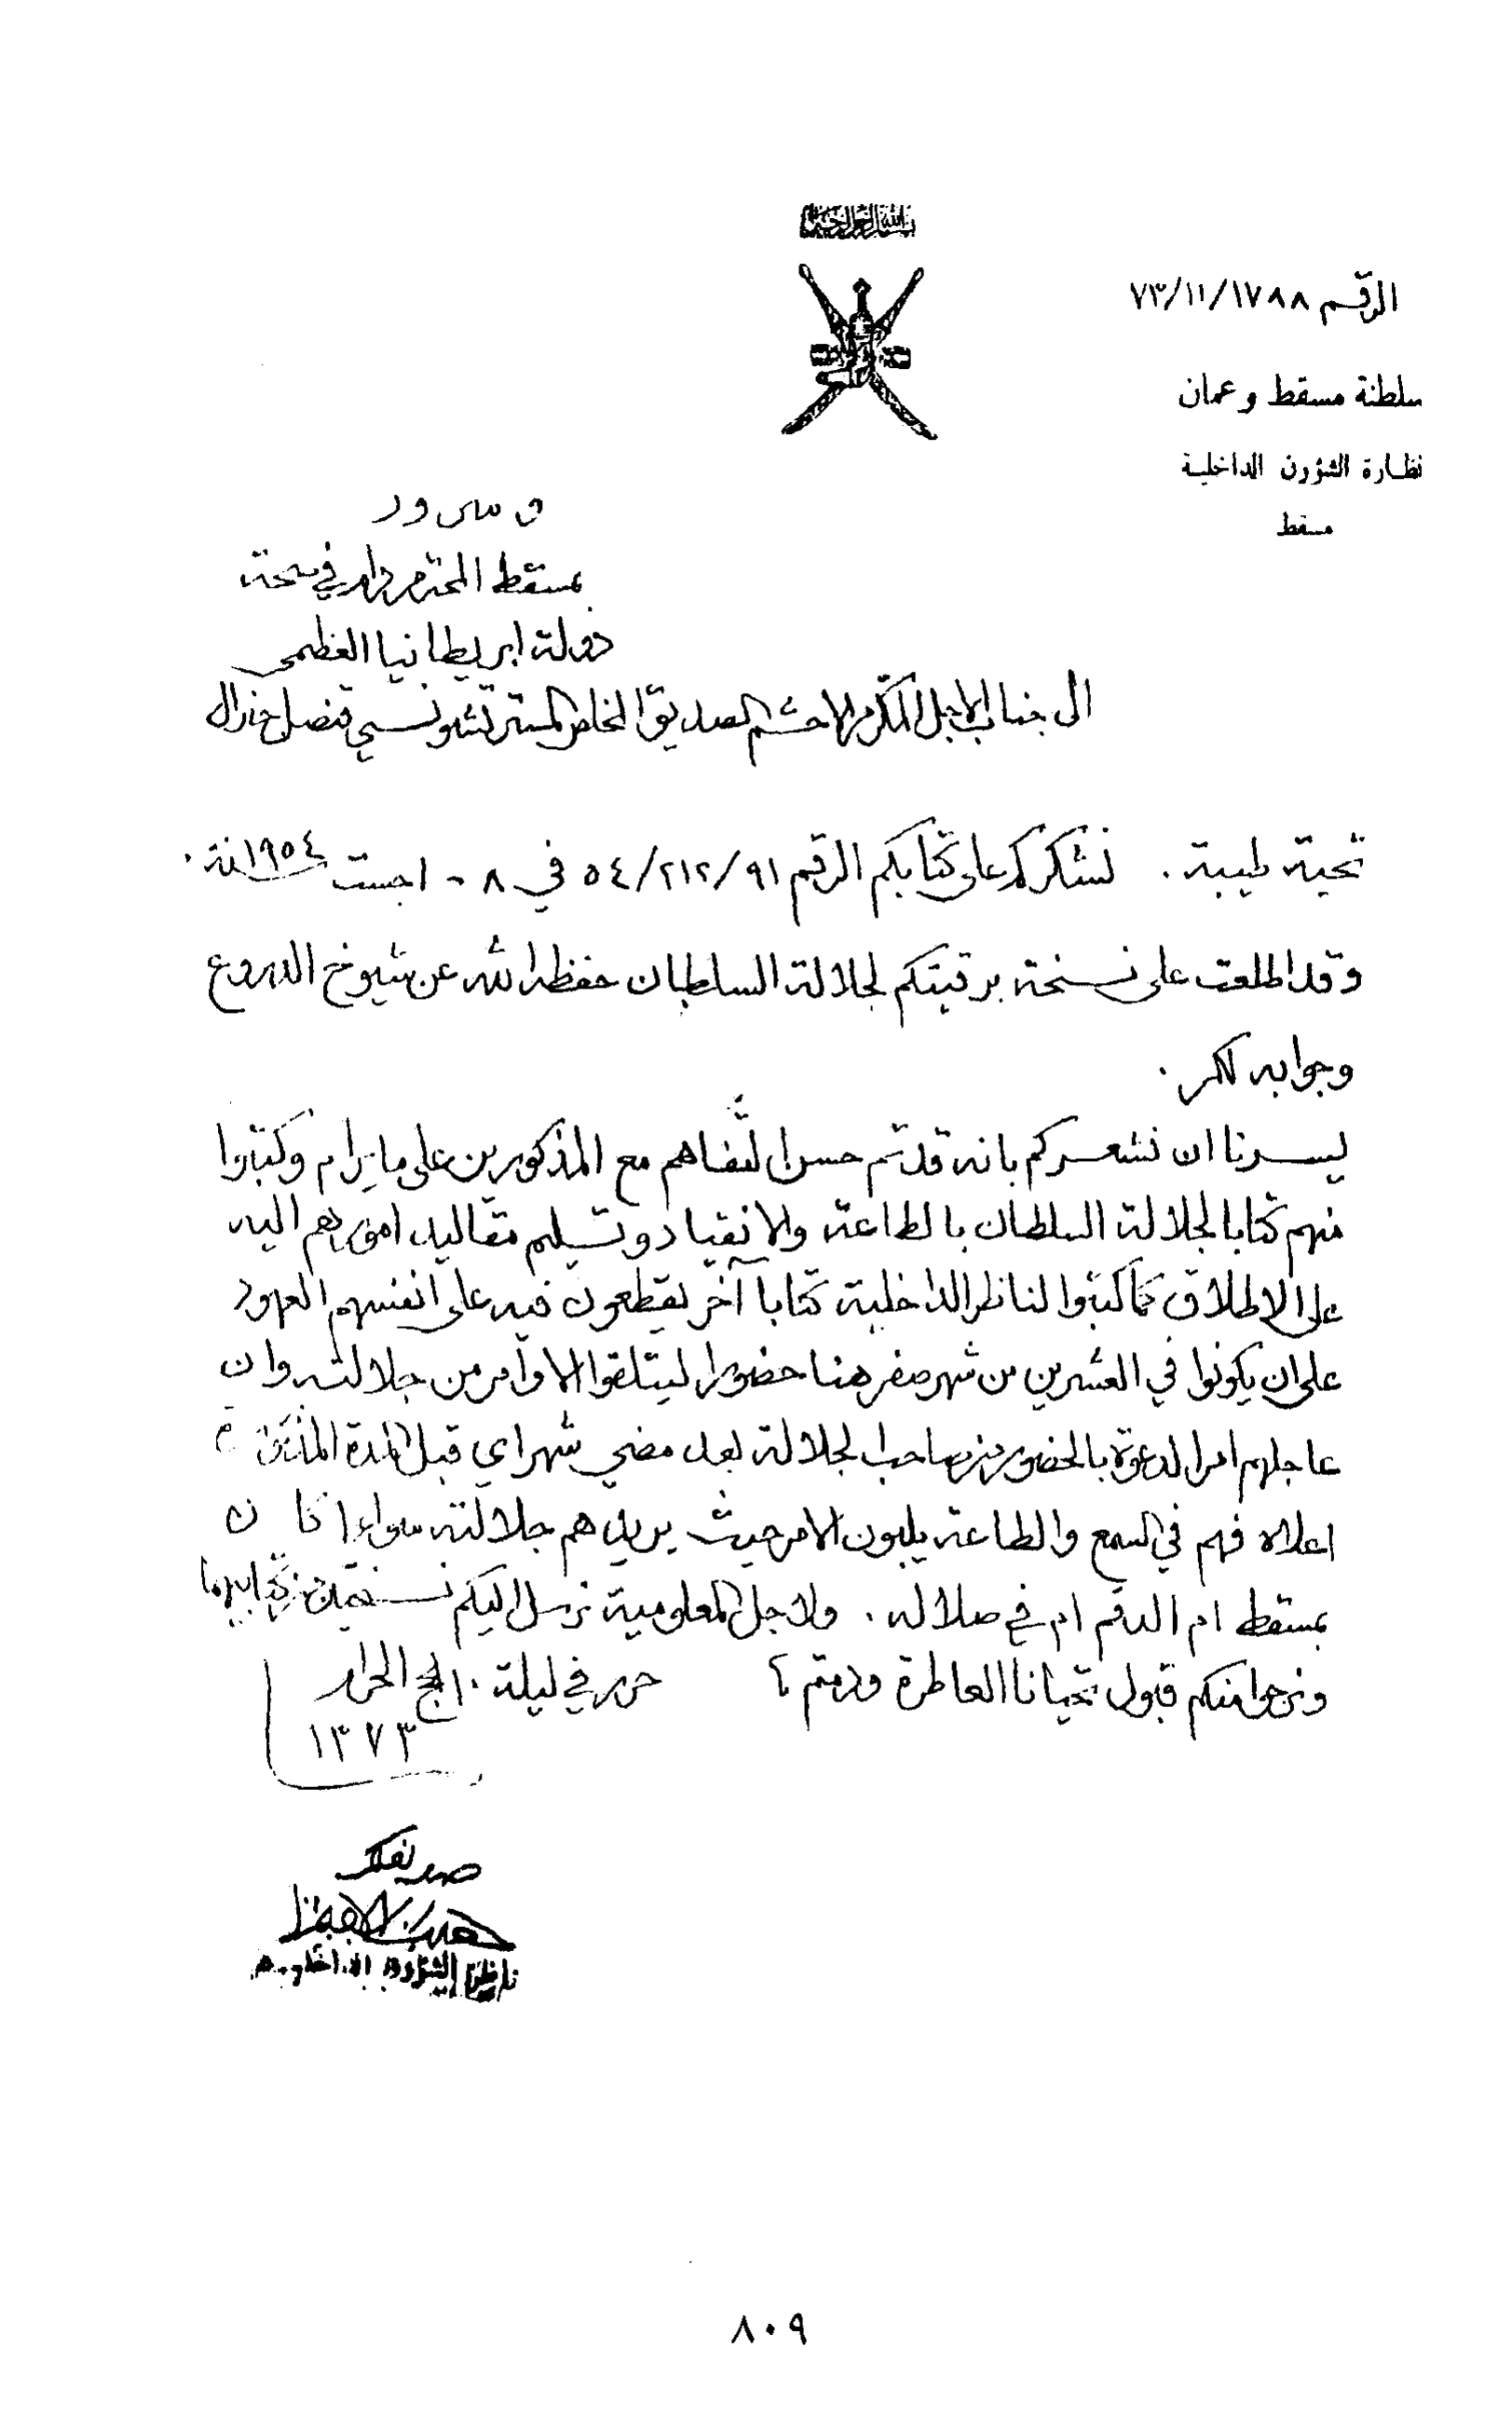 بسم الله الرحمن الرحيم
الرقم ١٧٨٨/١١/٧٣
سلطنة مسقط وعمان
نظارة الشؤون الداخلية
مسقط
الى جناب الاجل المكرم الاحشم الصديق الخاص المستر تشونسي قنصل جنرال
دولة ابريطانيا العظمى
بمسقط المحترم دام في صحة
وسرور
تحية طيبة . نشكركم على كتابكم الرقم ٥٤/٢١٢/٩١ في ٨ - اجست سنة ١٩٥٤ .
وقد اطلعت على نسخة برقيتكم لجلالة السلطان حفظه الله عن شيوخ الدروع
وجوابه لكم .
يسرنا ان نشعركم بانه قد تم حسن التفاهم مع المذكورين على ما يرام وكتبوا
منهم كتابا لجلالة السلطان بالطاعة والانقياد وتسليم مقاليد امورهم اليه
على الاطلاق كما كتبوا لناظر الداخلية كتابا آخر يقطعون فيه على انفسهم العهود
على ان يكونوا في العشرين من شهر صفر هنا حضورا ليتلقوا الاوامر من جلالته وان
عاجلهم امر الدعوة بالحضور من صاحب الجلالة بعد مضي شهر اي قبل المدة
اعلاه فهم في السمع والطاعة يلبون الامر حيث يريدهم جلالته سواءا كان
بمسقط ام الدقم ام في صلاله . ولاجل المعلومية نرسل اليكم نسختين من كتابيهما
ونرجوا منكم قبول تحياتنا العاطرة ودمتم ؛ حرر في ليلة ١٠ الحج الحرام
١٣٧٣
صديقكم
ناظر الشؤون الداخلية
٨٠٩